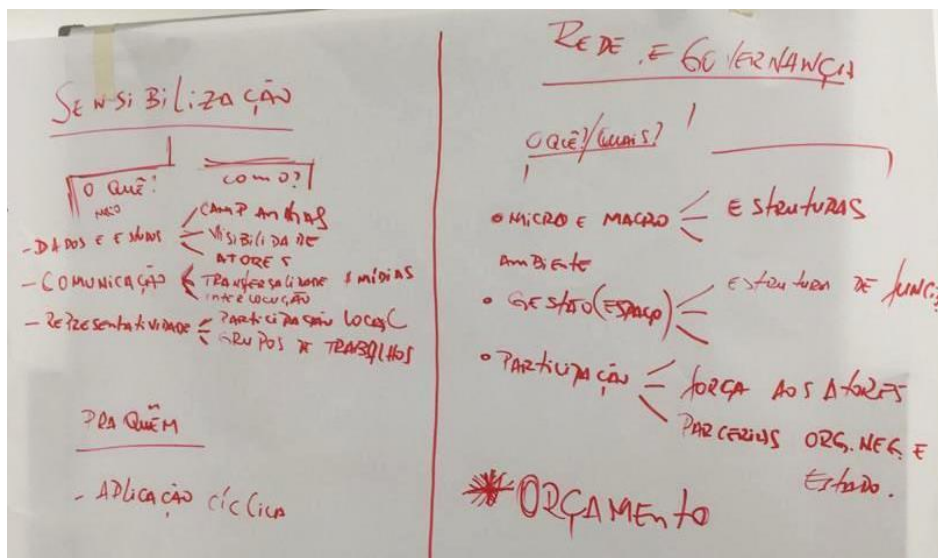 SENSIBILIZAÇÃO
O QUÊ? COMO?
- DADOS E ESTUDOS CAMPANHAS
VISIBILIDADE
ATORES
- COMUNICAÇÃO TRANSVERSALIDADE MÍDIAS
INTERLOCUÇÃO
- REPRESENTATIVIDADE PARTICIPAÇÃO LOCAL
GRUPOS DE TRABALHOS
PRA QUÊM
- APLICAÇÃO CÍCLICA
REDE E GOVERNANÇA
O QUÊ?/QUAIS?
• MICRO E MACRO ESTRUTURAS
AMBIENTE
• GESTÃO (ESPAÇO) ESTRUTURA DE
• PARTICIPAÇÃO FORÇA AOS ATORES
PARCERIAS ORG. NEG. E
ESTADO.
* ORÇAMENTO